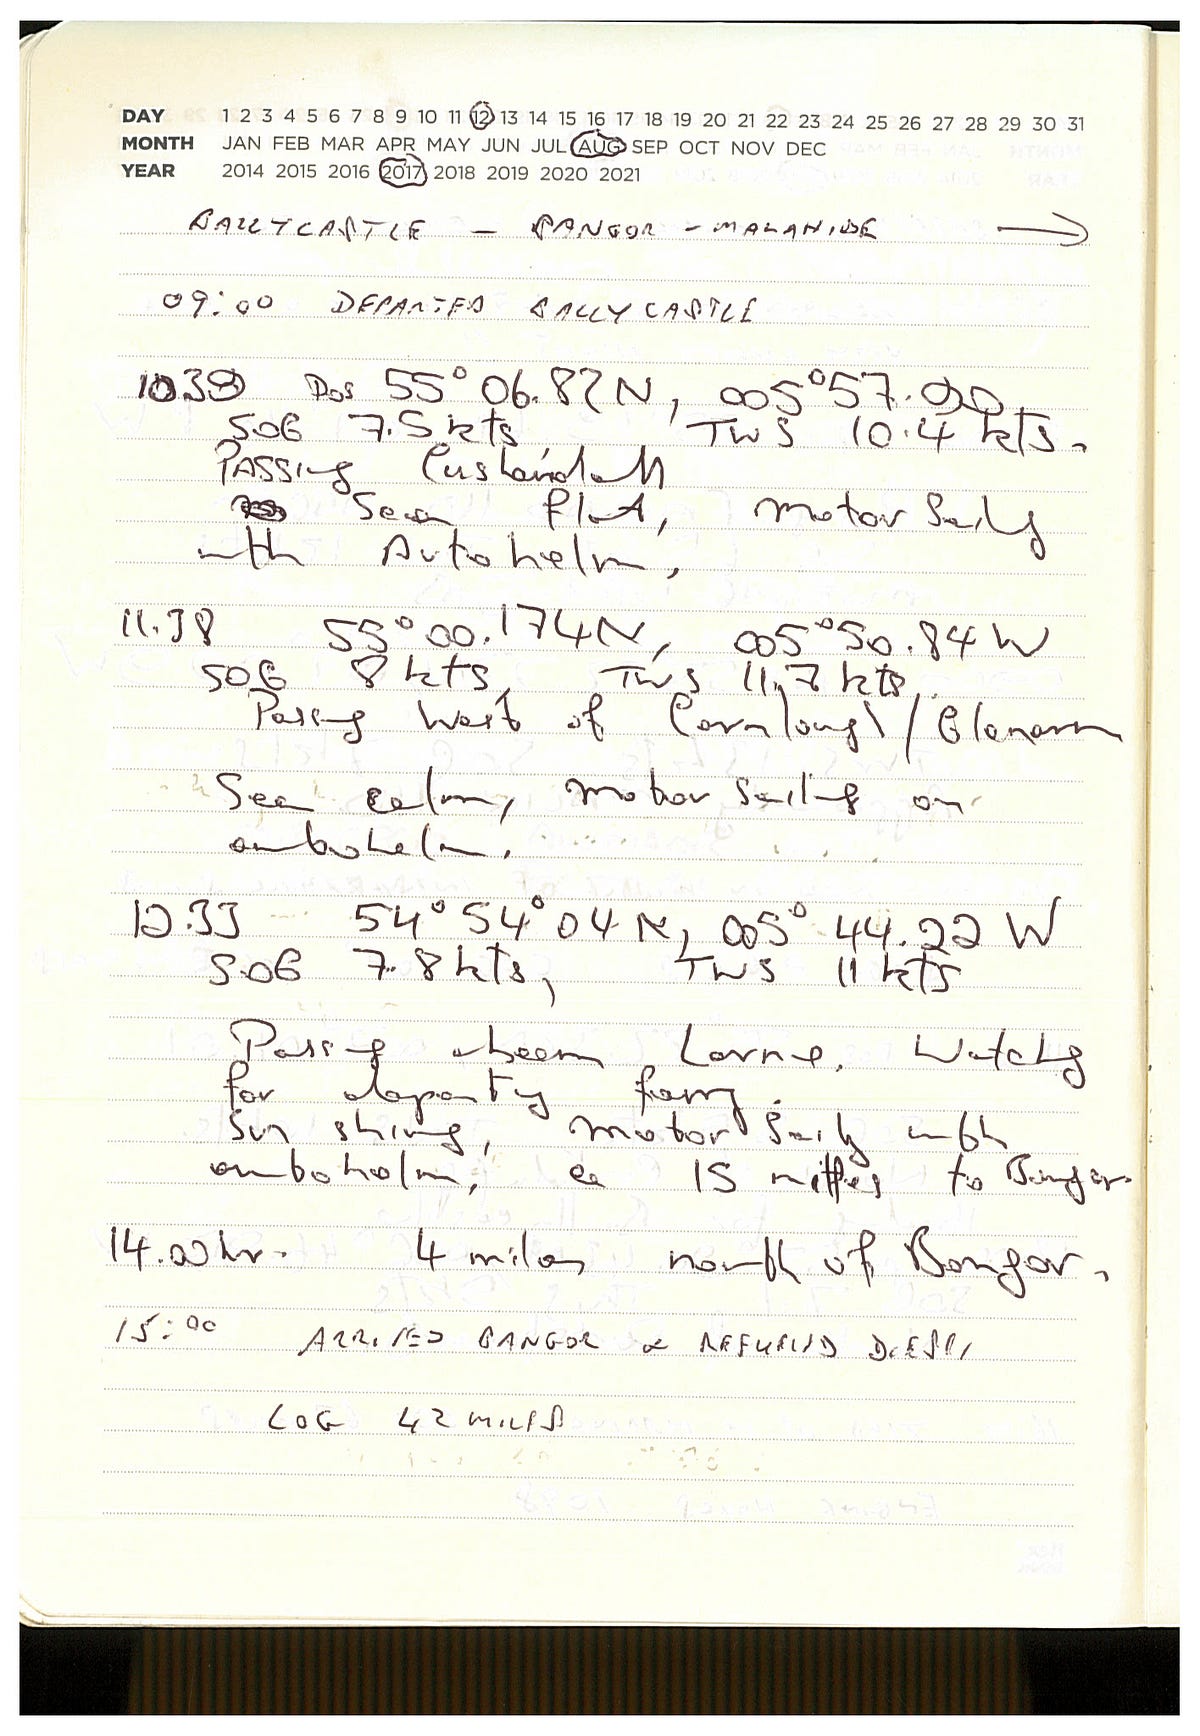 DAY 1 2 3 4 5 6 7 8 9 10 11 12 13 14 15 16 17 18 19 20 21 22 23 24 25 26 27 28 29 30 31
MONTH JAN FEB MAR APR MAY JUN JUL AUG SEP OCT NOV DEC
YEAR 2014 2015 2016 2017 2018 2019 2020 2021
BALLYCASTLE – BANGOR – MALAHIDE →
09:00 DEPARTED BALLYCASTLE
10.38 Pos 55° 06.82N, 005° 57.90
SOG 7.5 kts TWS 10.4 kts.
Passing Cushendall
Sea flat, motor sailing
with Autohelm,
11.38 55° 00.174N, 005° 50.84 W
SOG 8 kts, TWS 11.7 kts.
Passing West of Carnlough / Glenarm
Sea calm, motor sailing on
autohelm.
12.33 54° 54° 04 N, 005° 44.22 W
SOG 7.8 kts, TWS 11 kts
Passing abeam Larne. Watching
for departing ferry.
Sun shining, motor sailing with
autohelm, ca 15 miles to Bangor.
14.00 hr. 4 miles north of Bangor.
15:00 ARRIVED BANGOR & DIESEL
LOG 42 MILES